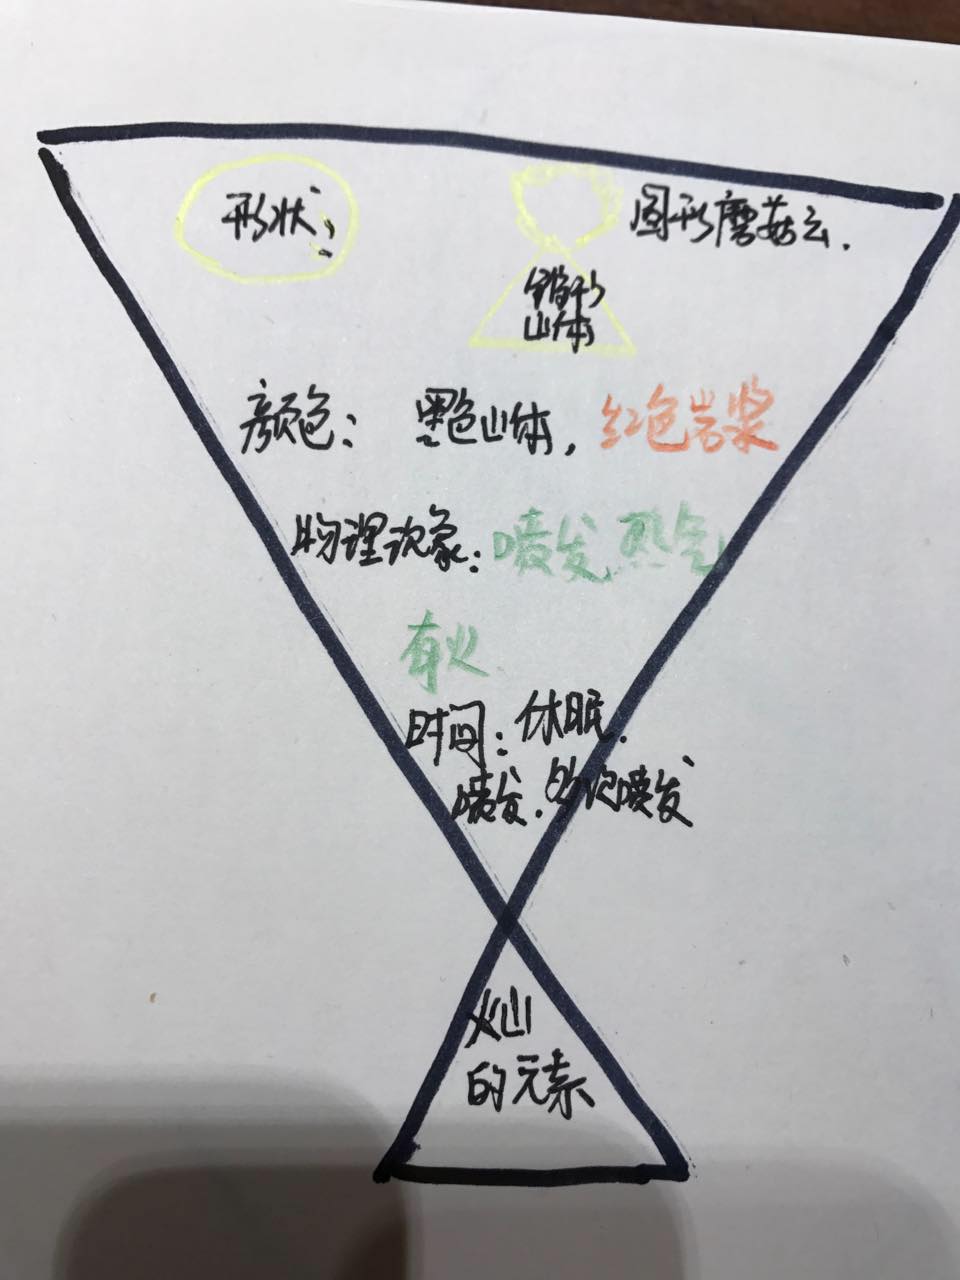 形状：
圆形蘑菇云.
锥形
山体
颜色： 黑色山体，红色岩浆
物理现象：喷发 热气
有火
时间：休眠.
喷发. 喷发
火山
的元素